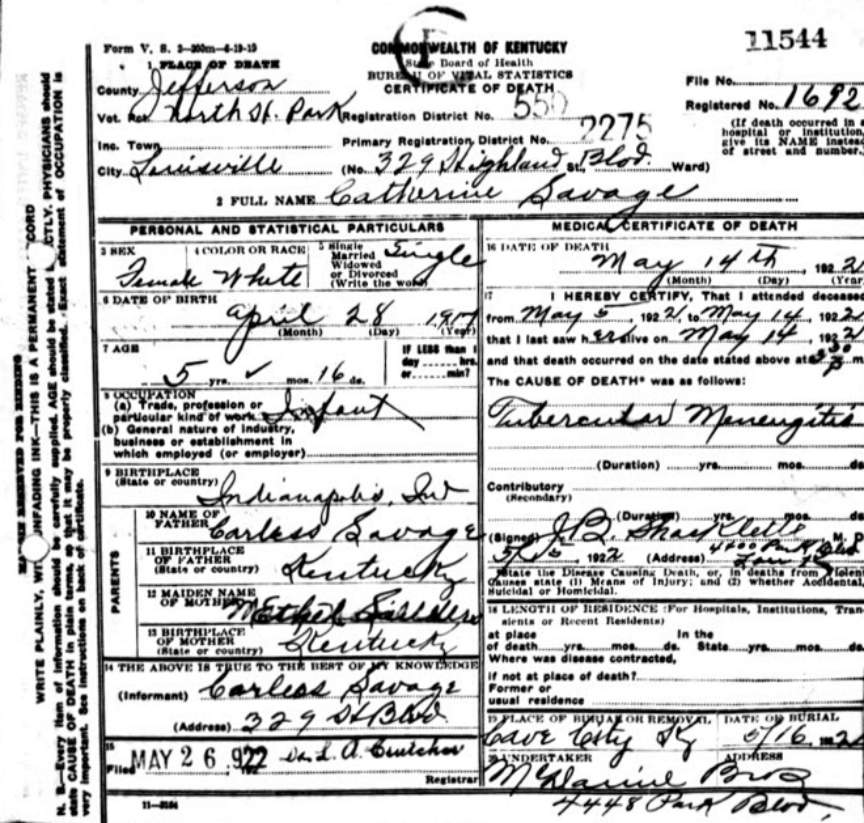 11544
Form V. S. 3—200m—4-19-19
COMMONWEALTH OF KENTUCKY
State Board of Health
BUREAU OF VITAL STATISTICS
CERTIFICATE OF DEATH
1 PLACE OF DEATH
County Jefferson
Vot. Pct. North St. Park
Registration District No. 550
File No.
Registered No. 1692
Inc. Town
Primary Registration District No. 2275
(If death occurred in a
hospital or institution,
give its NAME instead
of street and number.
City Louisville (No. 329 Highland St., Blvd. Ward)
2 FULL NAME Catherine Savage
PERSONAL AND STATISTICAL PARTICULARS
3 SEX Female
4 COLOR OR RACE White
5 Single
Married
Widowed
or Divorced
(Write the word) Single
6 DATE OF BIRTH
April 28
(Month) (Day) (Year)
7 AGE
5 yrs. mos. 16 ds.
IF LESS than 1
day hrs.
or min?
8 OCCUPATION
(a) Trade, profession or
particular kind of work Infant
(b) General nature of industry,
business or establishment in
which employed (or employer)
9 BIRTHPLACE
(State or country) Indianapolis, Ind
PARENTS
10 NAME OF
FATHER Carless Savage
11 BIRTHPLACE
OF FATHER
(State or country) Kentucky
12 MAIDEN NAME
OF MOTHER Ethel
13 BIRTHPLACE
OF MOTHER
(State or country) Kentucky
14 THE ABOVE IS TRUE TO THE BEST OF MY KNOWLEDGE
(Informant) Carless Savage
(Address) 329 St Blvd.
15
Filed MAY 26 1922 Dr. L. A. Crutcher
Registrar
11—3184
MEDICAL CERTIFICATE OF DEATH
16 DATE OF DEATH
May 14th, 192
(Month) (Day) (Year)
17 I HEREBY CERTIFY, That I attended deceased
from May 5, 192 to May 14, 192
that I last saw her alive on May 14, 192
and that death occurred on the date stated above at m
The CAUSE OF DEATH* was as follows:
Tubercular Menengitis
(Duration) yrs. mos. ds
Contributory
(Secondary)
(Duration) yrs. mos. ds
(Signed) J. B. Shacklette M. D
1922 (Address) 4400 Park Blvd
*State the Disease Causing Death, or, in deaths from Violent
Causes state (1) Means of Injury; and (2) whether Accidental,
Suicidal or Homicidal.
18 LENGTH OF RESIDENCE (For Hospitals, Institutions, Tran
sients or Recent Residents)
at place In the
of death yrs. mos. ds. State yrs. mos. ds
Where was disease contracted,
if not at place of death?
Former or
usual residence
19 PLACE OF BURIAL OR REMOVAL DATE OF BURIAL
Cave City Ky 5/16 192
20 UNDERTAKER ADDRESS
McDaniel Bros
4448 Park Blvd,
WRITE PLAINLY, WITH UNFADING INK—THIS IS A PERMANENT RECORD
N. B.—Every item of information should be carefully supplied. AGE should be stated EXACTLY. PHYSICIANS should
state CAUSE OF DEATH in plain terms, so that it may be properly classified. Exact statement of OCCUPATION is
very important. See instructions on back of certificate.